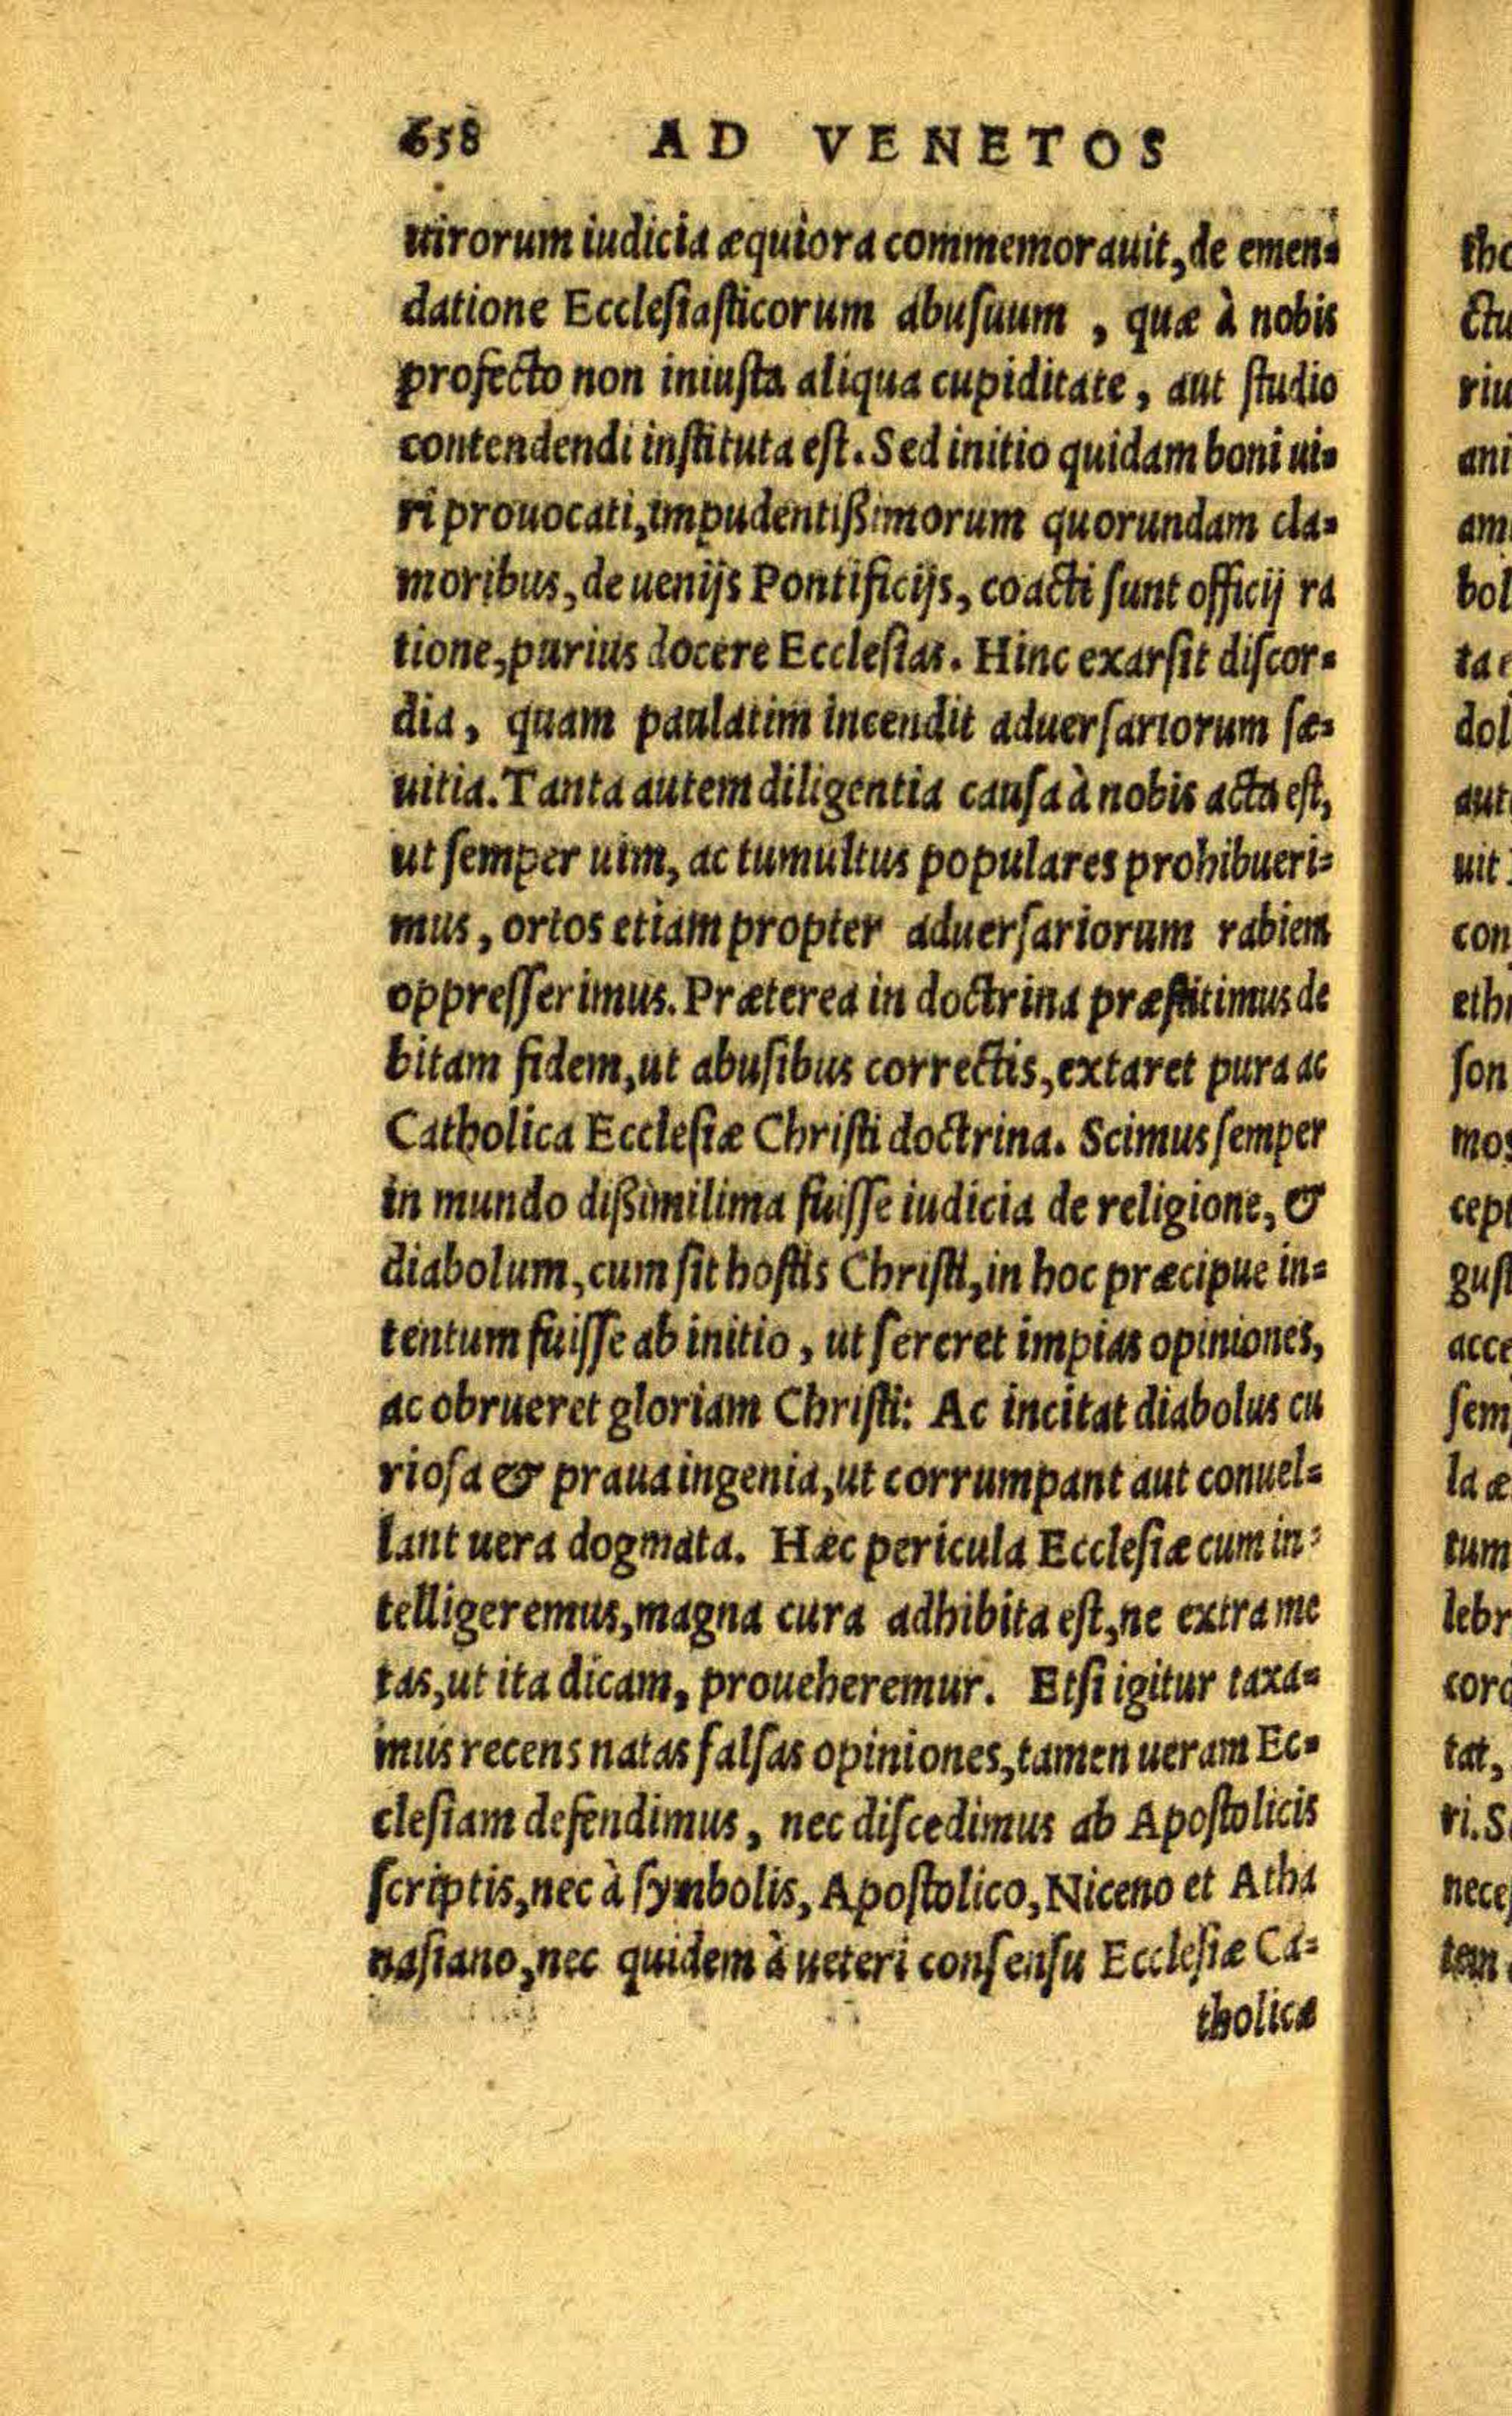 658 AD VENETOS
uirorum iudicia æquiora commemorauit, de emen-
datione Ecclesiasticorum abusuum, quæ à nobis
profecto non iniusta aliqua cupiditate, aut studio
contendendi instituta est. Sed initio quidam boni ui-
ri prouocati, impudentißimorum quorundam cla-
moribus, de uenijs Pontificijs, coacti sunt officij ra
tione, purius docere Ecclesias. Hinc exarsit discor-
dia, quam paulatim incendit aduersariorum sæ-
uitia. Tanta autem diligentia causa à nobis acta est,
ut semper uim, ac tumultus populares prohibueri-
mus, ortos etiam propter aduersariorum rabiem
oppresserimus. Præterea in doctrina præstitimus de
bitam fidem, ut abusibus correctis, extaret pura ac
Catholica Ecclesiæ Christi doctrina. Scimus semper
in mundo dißimilima fuisse iudicia de religione, &
diabolum, cum sit hostis Christi, in hoc præcipue in-
tentum fuisse ab initio, ut sereret impias opiniones,
ac obrueret gloriam Christi: Ac incitat diabolus cu
riosa & praua ingenia, ut corrumpant aut conuel-
lant uera dogmata. Hæc pericula Ecclesiæ cum in-
telligeremus, magna cura adhibita est, ne extra me
tas, ut ita dicam, proueheremur. Etsi igitur taxa-
mus recens natas falsas opiniones, tamen ueram Ec-
clesiam defendimus, nec discedimus ab Apostolicis
scriptis, nec à symbolis, Apostolico, Niceno et Atha
nasiano, nec quidem à ueteri consensu Ecclesiæ Ca-
tholicæ